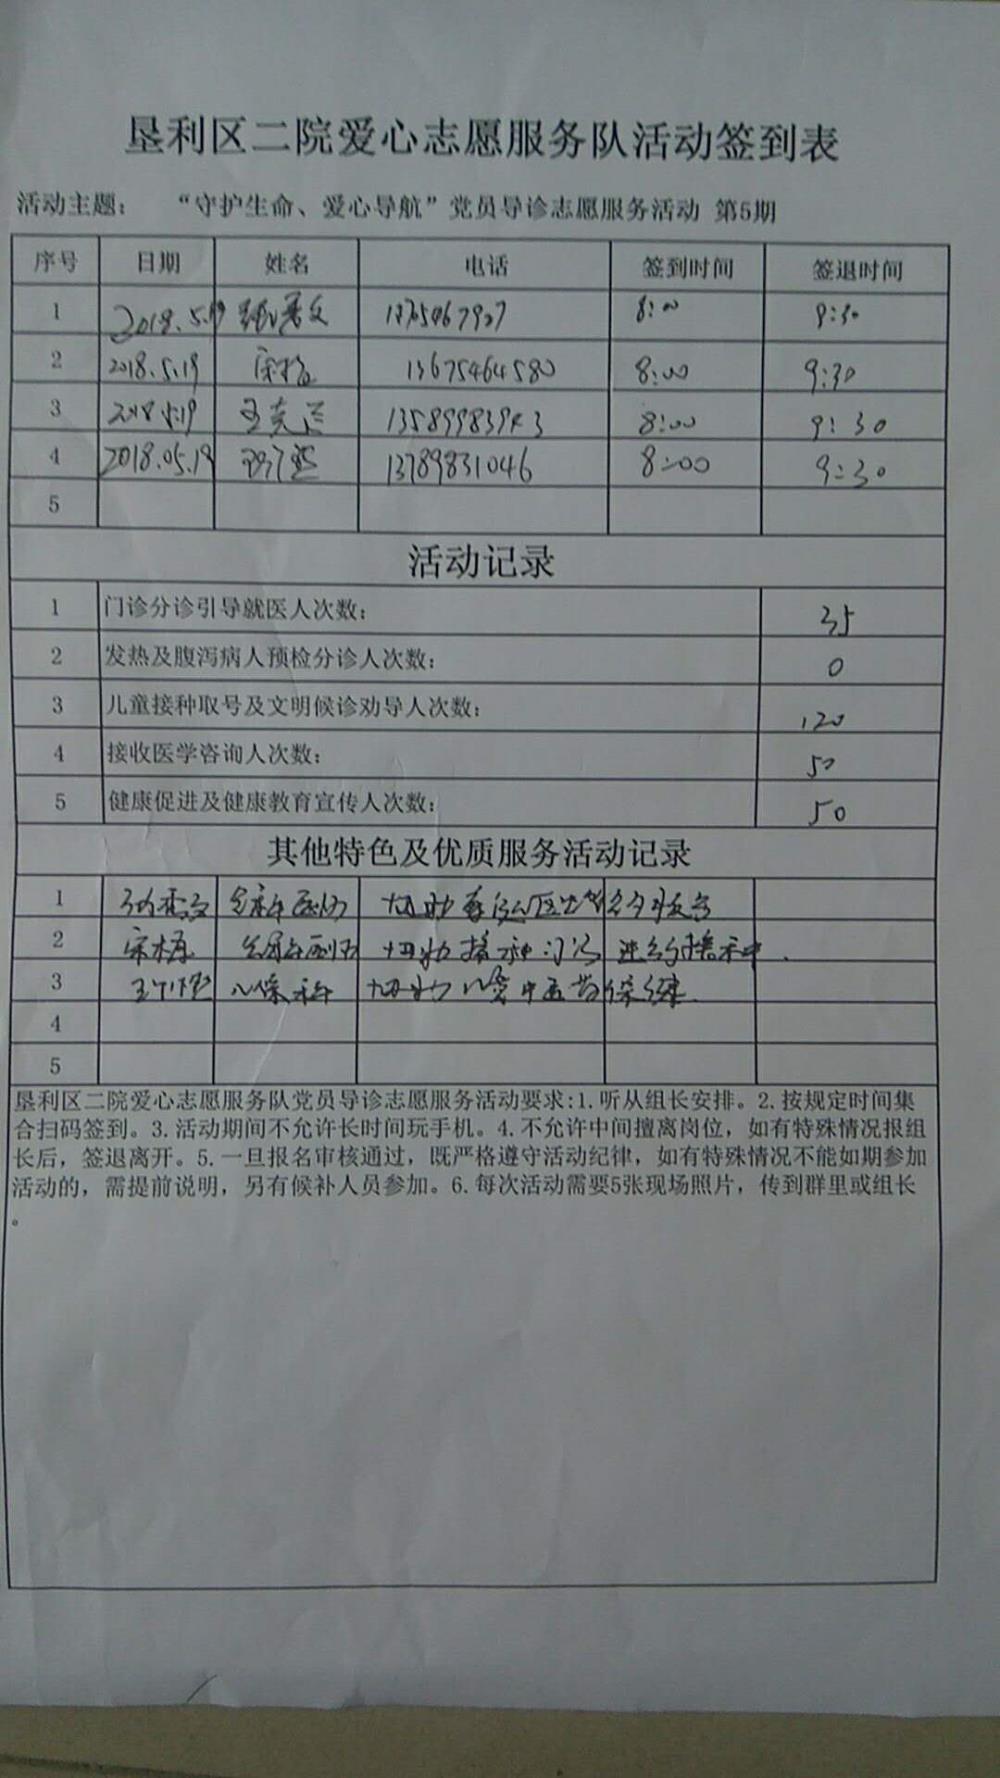 垦利区二院爱心志愿服务队活动签到表
活动主题： “守护生命、爱心导航”党员导诊志愿服务活动 第5期
序号 日期 姓名 电话 签到时间 签退时间
1 2018.5.19 8:00 9:30
2 2018.5.19 13675464580 8:00 9:30
3 2018.5.19 王克 8:00 9:30
4 2018.05.19 13789831046 8:00 9:30
5
活动记录
1 门诊分诊引导就医人次数： 35
2 发热及腹泻病人预检分诊人次数： 0
3 儿童接种取号及文明候诊劝导人次数： 120
4 接收医学咨询人次数： 50
5 健康促进及健康教育宣传人次数： 50
其他特色及优质服务活动记录
1 协助
2 协助接种门诊
3 儿保科 协助儿童中医药保健
4
5
垦利区二院爱心志愿服务队党员导诊志愿服务活动要求:1.听从组长安排。2.按规定时间集
合扫码签到。3.活动期间不允许长时间玩手机。4.不允许中间擅离岗位，如有特殊情况报组
长后，签退离开。5.一旦报名审核通过，既严格遵守活动纪律，如有特殊情况不能如期参加
活动的，需提前说明，另有候补人员参加。6.每次活动需要5张现场照片，传到群里或组长
。